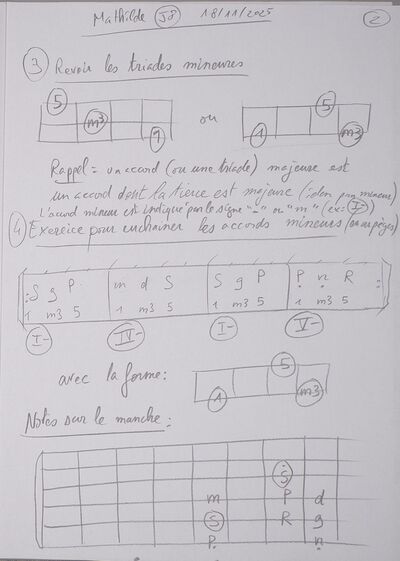 Mathilde J8 18/11/2025 2
3 Revoir les triades mineures
5 m3 1 ou 1 5 m3
Rappel = un accord (ou une triade) majeure est
un accord dont la tierce est majeure (idem pour mineure)
L'accord mineur est indiqué par le signe "-" ou "m" (ex: I-)
4 Exercice pour enchainer les accords mineurs (ou arpèges)
: S g P m d S S g P P n R :
1 m3 5 1 m3 5 1 m3 5 1 m3 5
I- IV- I- V-
avec la forme: 1 5 m3
Notes sur le manche :
S
m P d
S R g
P n